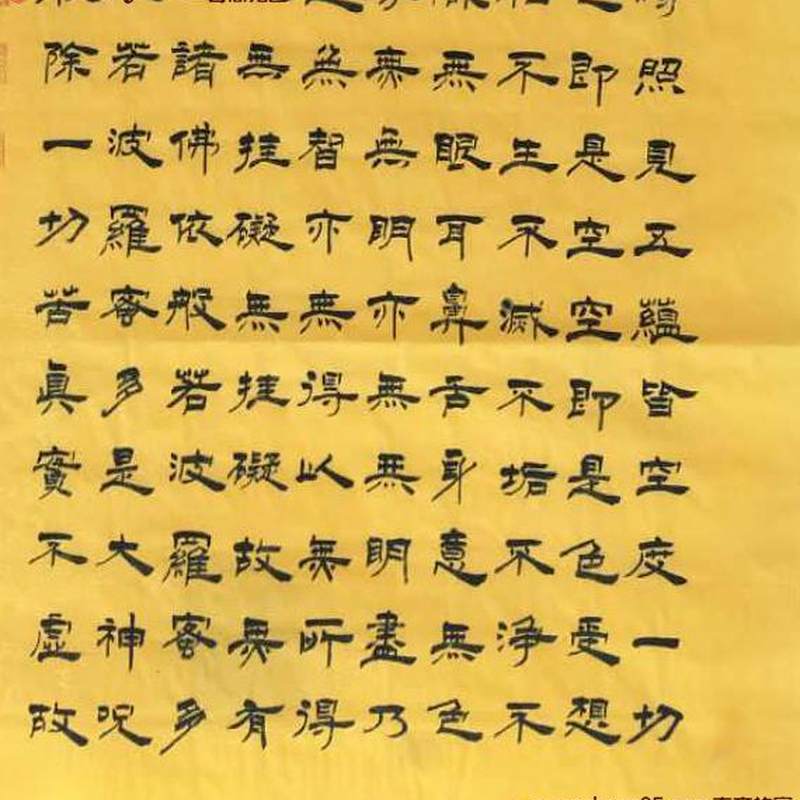 照見五蘊皆空度一切
即是空空即是色受想
不生不滅不垢不淨不
無眼耳鼻舌身意無色
無無明亦無無明盡乃
無智亦無得以無所得
無挂礙無挂礙故無有
諸佛依般若波羅蜜多
若波羅蜜多是大神呪
除一切苦眞實不虛故